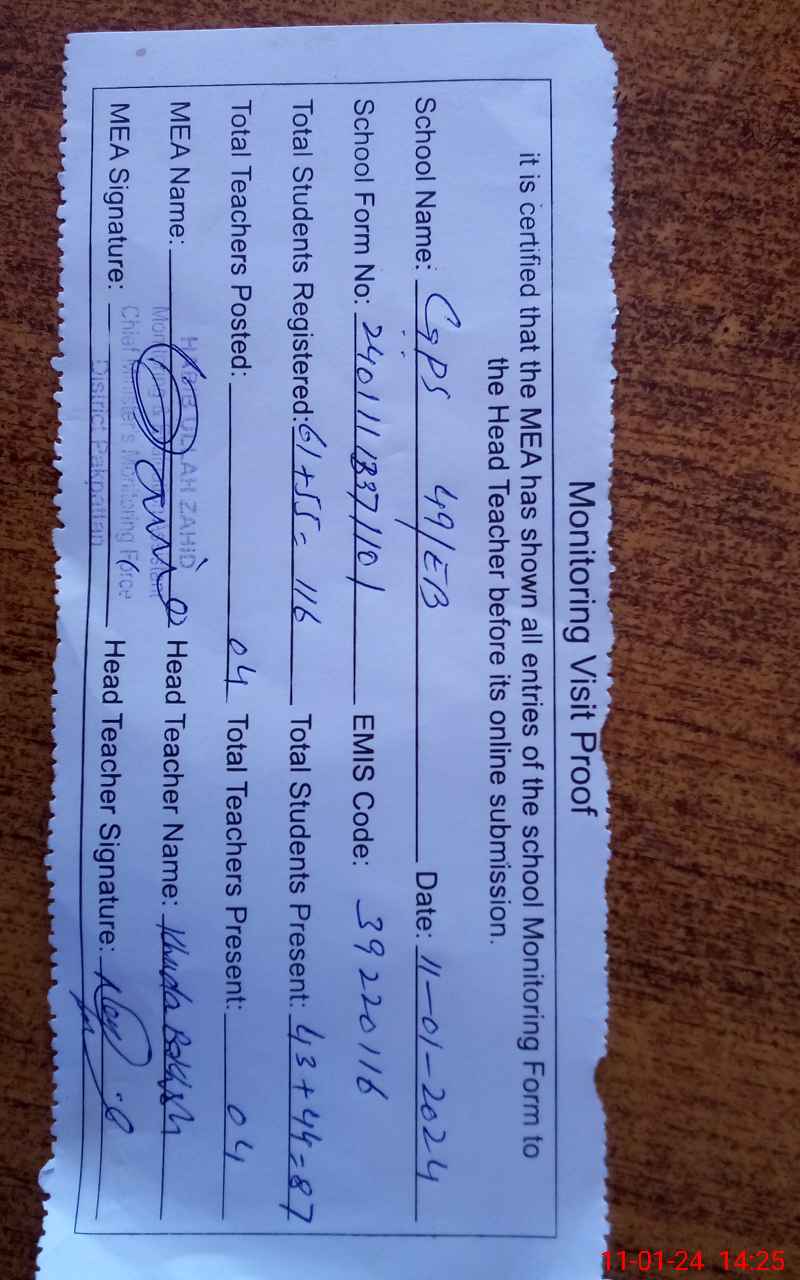 Monitoring Visit Proof
it is certified that the MEA has shown all entries of the school Monitoring Form to
the Head Teacher before its online submission.
School Name: GPS 49/EB Date: 11-01-2024
School Form No: 24011113371101 EMIS Code: 39220116
Total Students Registered: 61+55= 116 Total Students Present: 43+44=87
Total Teachers Posted: 04 Total Teachers Present: 04
MEA Name: Head Teacher Name: Khuda Bakhsh
MEA Signature: Head Teacher Signature:
ULLAH ZAHID
Monitoring
Chief Minister's Monitoring Force
District Pakpattan
11-01-24 14:25